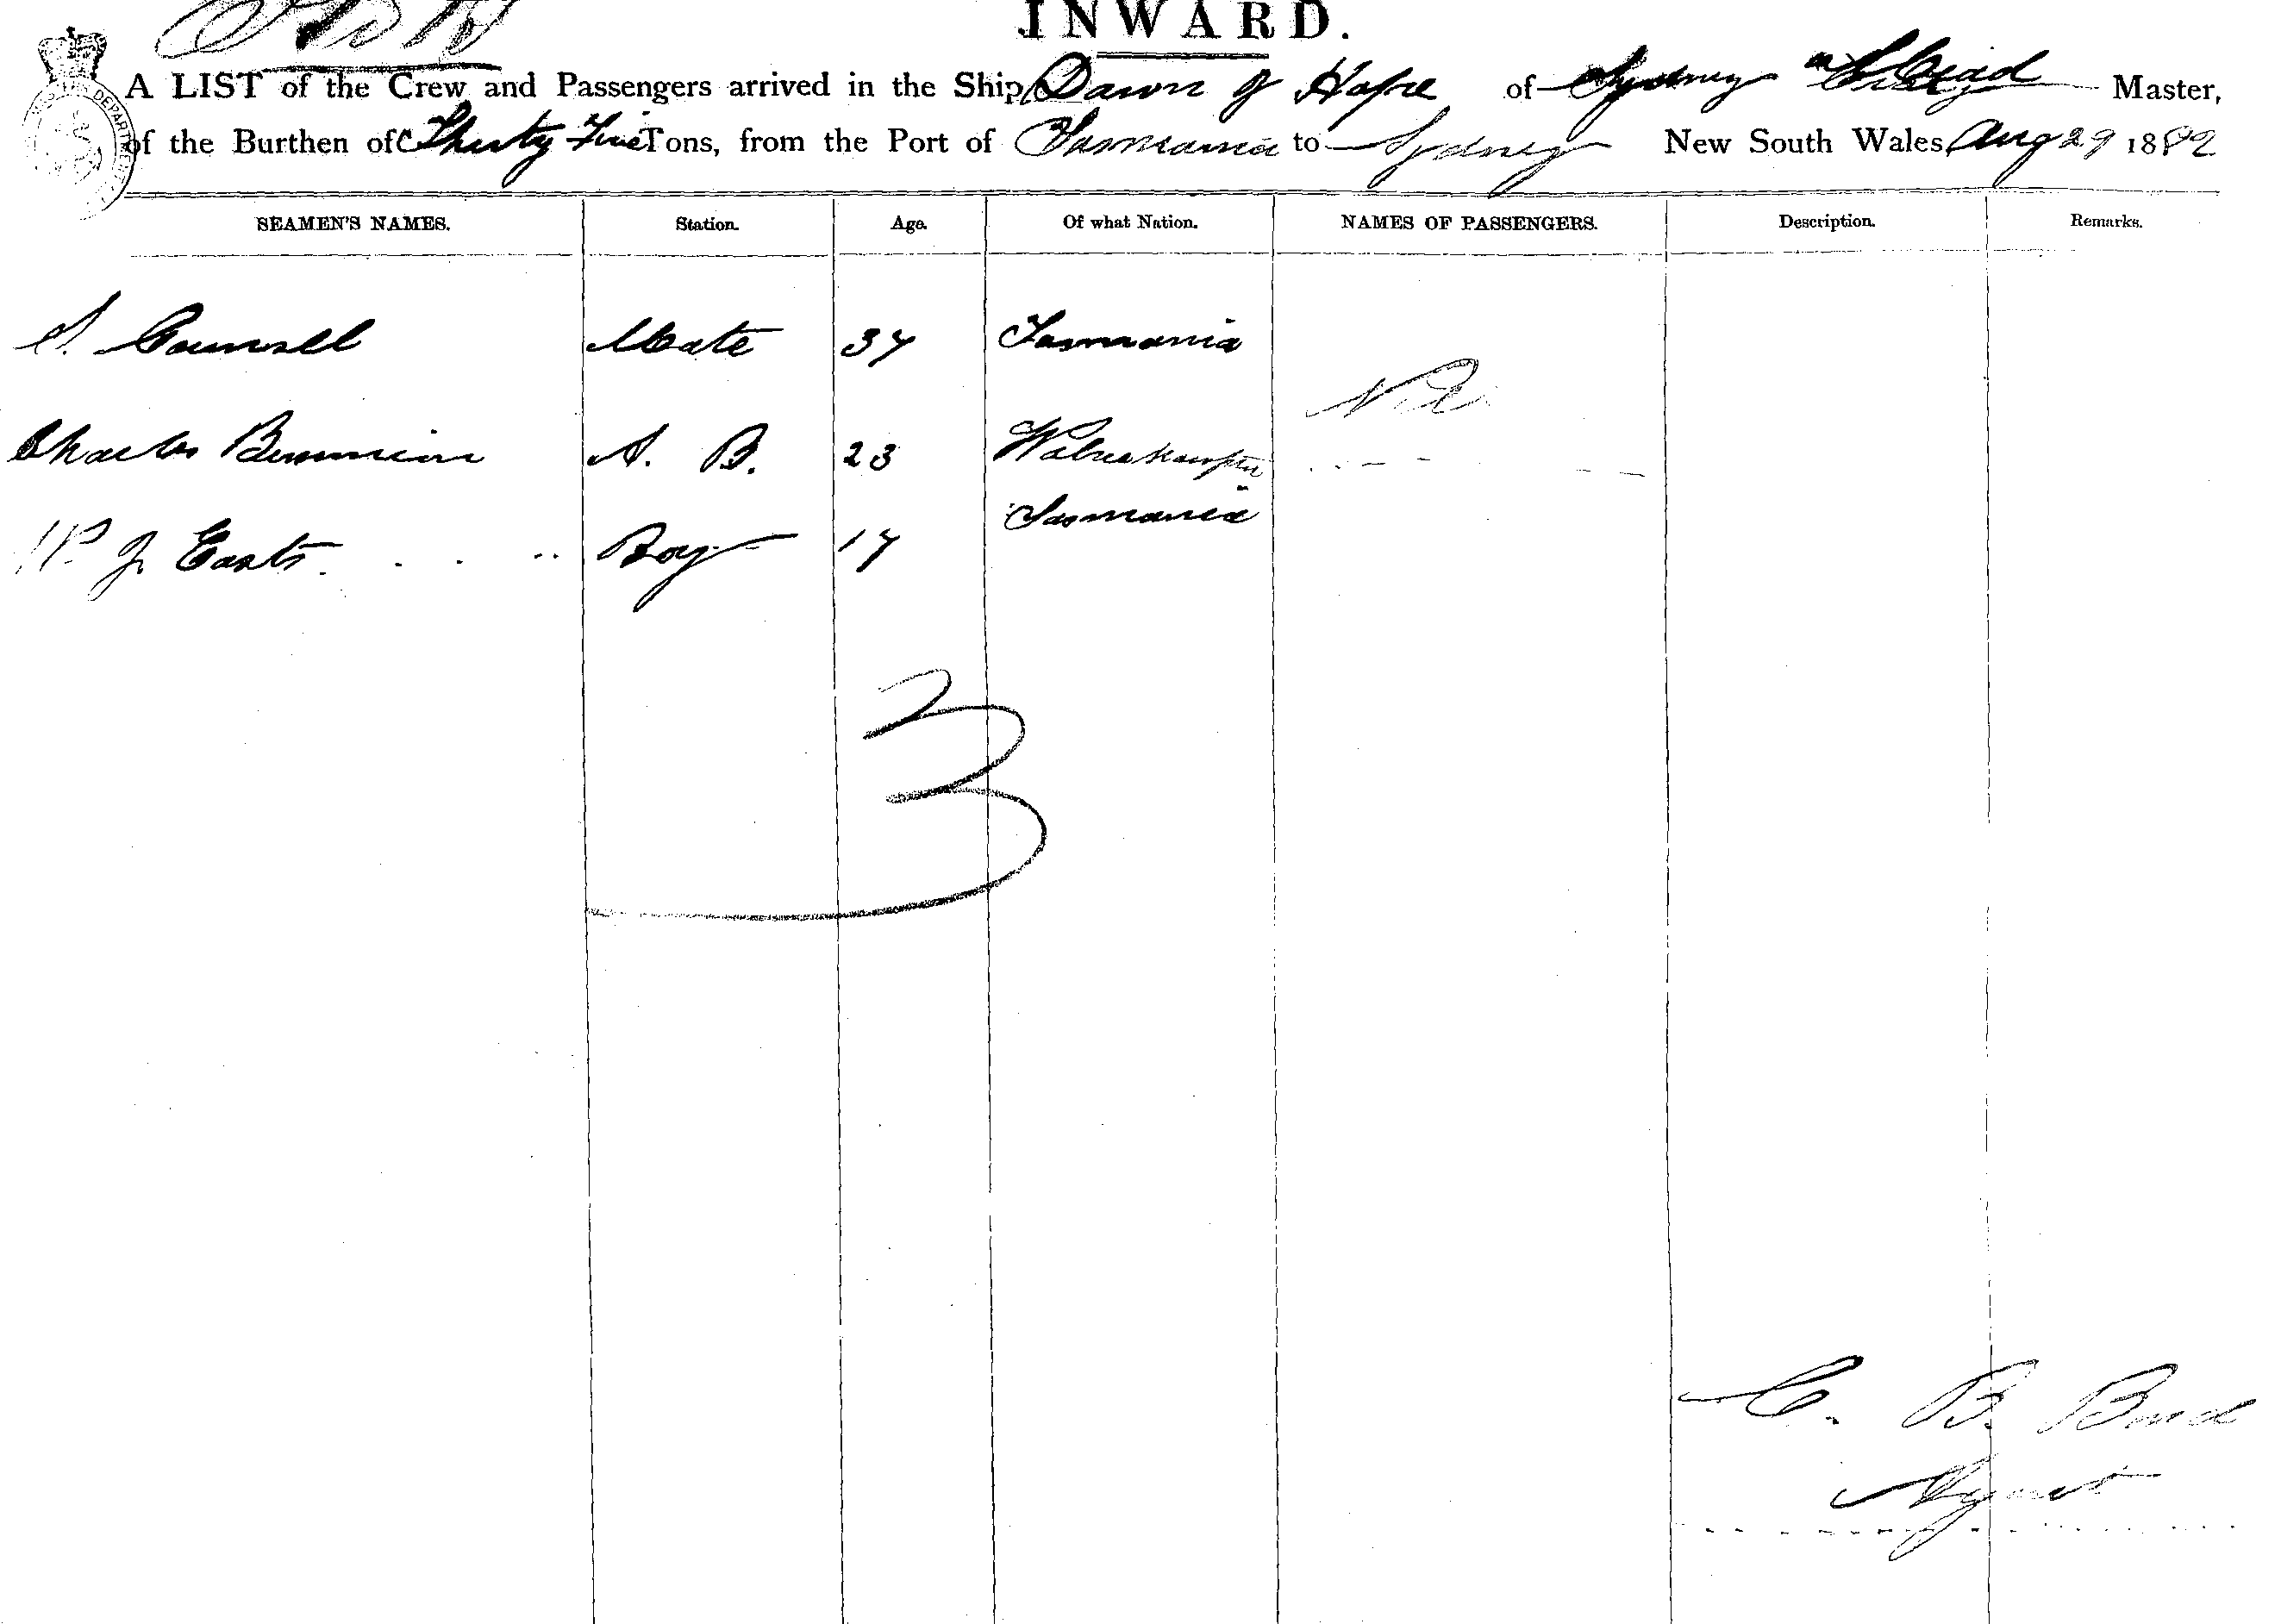 INWARD.
A LIST of the Crew and Passengers arrived in the Ship Dawn of Hope of Sydney Master,
of the Burthen of Thirty Five Tons, from the Port of Tasmania to Sydney New South Wales, Aug 29 1882
SEAMEN'S NAMES. Station. Age. Of what Nation. NAMES OF PASSENGERS. Description. Remarks.
Counsell Mate 37 Tasmania
Nil
Charles A. B. 23
W. J. Easts Boy 17 Tasmania
3
C. B. Bond
Agent